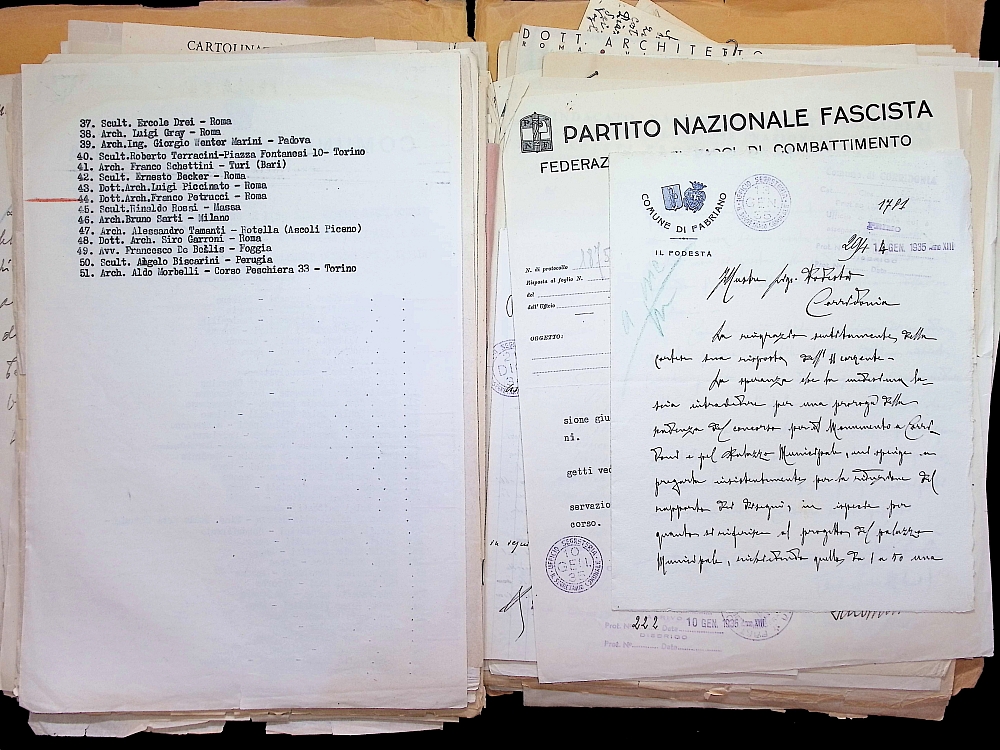 CARTOLINA
37. Scult. Ercole Drei - Roma
38. Arch. Luigi Gray - Roma
39. Arch.Ing. Giorgio Wenter Marini - Padova
40. Scult.Roberto Terracini-Piazza Fontanesi 10- Torino
41. Arch. Franco Schettini - Turi (Bari)
42. Scult. Ernesto Becker - Roma
43. Dott.Arch.Luigi Piccinato - Roma
44. Dott.Arch.Franco Petrucci - Roma
45. Scult.Rinaldo Rossi - Massa
46. Arch.Bruno Sarti - Milano
47. Arch. Alessandro Tamanti - Rotella (Ascoli Piceno)
48. Dott. Arch. Siro Garroni - Roma
49. Avv. Francesco De Bellis - Foggia
50. Scult. Angelo Biscarini - Perugia
51. Arch. Aldo Morbelli - Corso Peschiera 33 - Torino
DOTT. ARCHITETTO
ROMA
PARTITO NAZIONALE FASCISTA
FEDERAZ DI COMBATTIMENTO
N. di protocollo
Risposta al foglio N.
del
dell'Ufficio
OGGETTO:
sione giu
ni.
getti ved
servazio
corso.
10 GEN.
Prot. Nº 222 Data 10 GEN. 1935 Anno XIII
Prot. Nº Data
COMUNE DI FABRIANO
IL PODESTÀ
1781
294 14 GEN. 1935 Anno XIII
Illustre Sig. Podestà
Corridonia
La ringrazio sentitamente della
cortese sua risposta dell'11 corrente.
La speranza che la medesima la-
scia intravedere per una proroga della
scadenza del concorso pel Monumento a Corri-
doni e pel Palazzo Municipale, mi spinge a
pregarla insistentemente per la riduzione del
rapporto dei disegni, in ispecie per
quanto si riferisce al progetto del palazzo
Municipale, richiedendo quello da 1 a 50 una